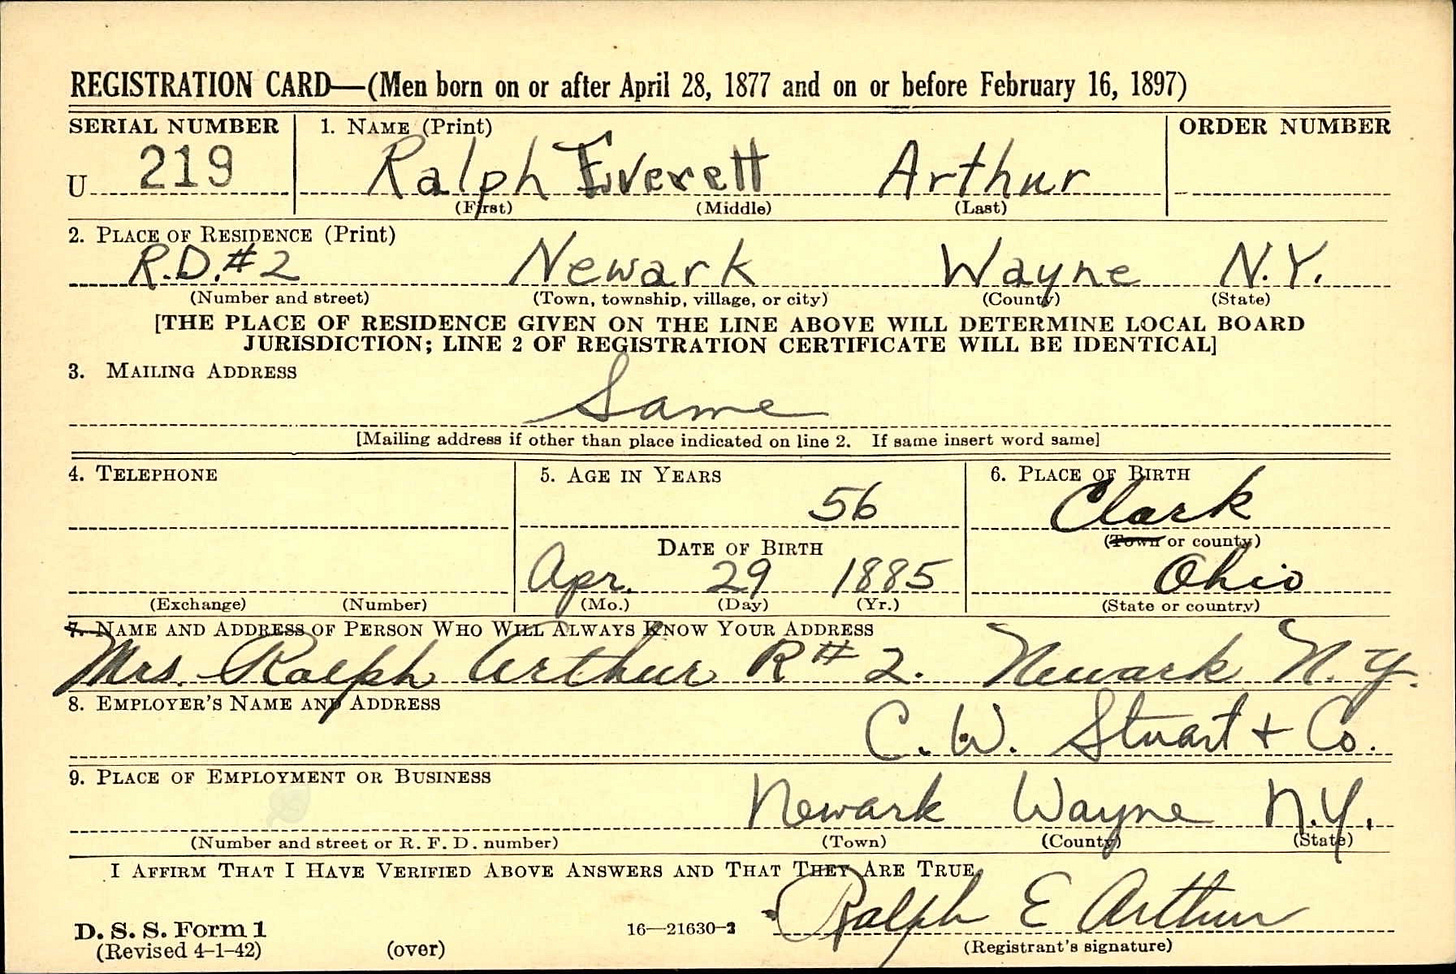 REGISTRATION CARD—(Men born on or after April 28, 1877 and on or before February 16, 1897)
SERIAL NUMBER
U 219
1. NAME (Print)
Ralph Everett Arthur
(First) (Middle) (Last)
ORDER NUMBER
2. PLACE OF RESIDENCE (Print)
R.D. #2 Newark Wayne N.Y.
(Number and street) (Town, township, village, or city) (County) (State)
[THE PLACE OF RESIDENCE GIVEN ON THE LINE ABOVE WILL DETERMINE LOCAL BOARD
JURISDICTION; LINE 2 OF REGISTRATION CERTIFICATE WILL BE IDENTICAL]
3. MAILING ADDRESS
Same
[Mailing address if other than place indicated on line 2. If same insert word same]
4. TELEPHONE
(Exchange) (Number)
5. AGE IN YEARS
56
DATE OF BIRTH
Apr. 29 1885
(Mo.) (Day) (Yr.)
6. PLACE OF BIRTH
Clark
(Town or county)
Ohio
(State or country)
7. NAME AND ADDRESS OF PERSON WHO WILL ALWAYS KNOW YOUR ADDRESS
Mrs. Ralph Arthur R # 2. Newark N.Y.
8. EMPLOYER'S NAME AND ADDRESS
C. W. Stuart + Co.
9. PLACE OF EMPLOYMENT OR BUSINESS
Newark Wayne N.Y.
(Number and street or R. F. D. number) (Town) (County) (State)
I AFFIRM THAT I HAVE VERIFIED ABOVE ANSWERS AND THAT THEY ARE TRUE.
Ralph E Arthur
D. S. S. Form 1
(Revised 4-1-42) (over) 16—21630-2 (Registrant's signature)